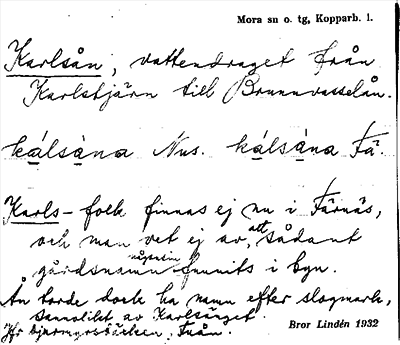 Mora sn o. tg, Kopparb. l.
Karlsån, vattendraget från
Karlstjärn till Brunnvasselån.
kálsána Nus. kálsána Fä.
Karls-folk finnas ej nu i Färnäs,
och man vet ej av, att sådant
gårdsnamn någonsin funnits i byn.
Ån torde dock ha namn efter slogmark,
sannolikt av Karlsänget.
Jfr
Bror Lindén 1932